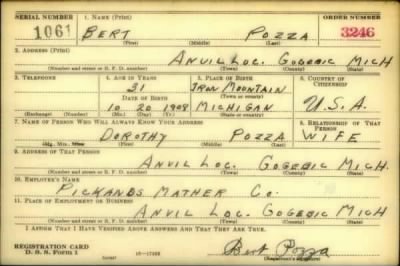 SERIAL NUMBER 1. NAME (Print) ORDER NUMBER
1061 BERT POZZA 3246
(First) (Middle) (Last)
2. ADDRESS (Print)
ANVIL LOC. GOGEBIC MICH
(Number and street or R. F. D. number) (Town) (County) (State)
3. TELEPHONE 4. AGE IN YEARS 5. PLACE OF BIRTH 6. COUNTRY OF CITIZENSHIP
31 IRON MOUNTAIN
DATE OF BIRTH (Town or county)
10 20 1908 MICHIGAN U.S.A.
(Exchange) (Number) (Mo.) (Day) (Yr.) (State or country)
7. NAME OF PERSON WHO WILL ALWAYS KNOW YOUR ADDRESS 8. RELATIONSHIP OF THAT PERSON
DOROTHY POZZA WIFE
(Mr., Mrs., Miss) (First) (Middle) (Last)
9. ADDRESS OF THAT PERSON
ANVIL LOC. GOGEBIC MICH.
(Number and street or R. F. D. number) (Town) (County) (State)
10. EMPLOYER'S NAME
PICKANDS MATHER CO.
11. PLACE OF EMPLOYMENT OR BUSINESS
ANVIL LOC. GOGEBIC MICH
(Number and street or R. F. D. number) (Town) (County) (State)
I AFFIRM THAT I HAVE VERIFIED ABOVE ANSWERS AND THAT THEY ARE TRUE.
REGISTRATION CARD
D. S. S. Form 1 Bert Pozza
(Registrant's signature)